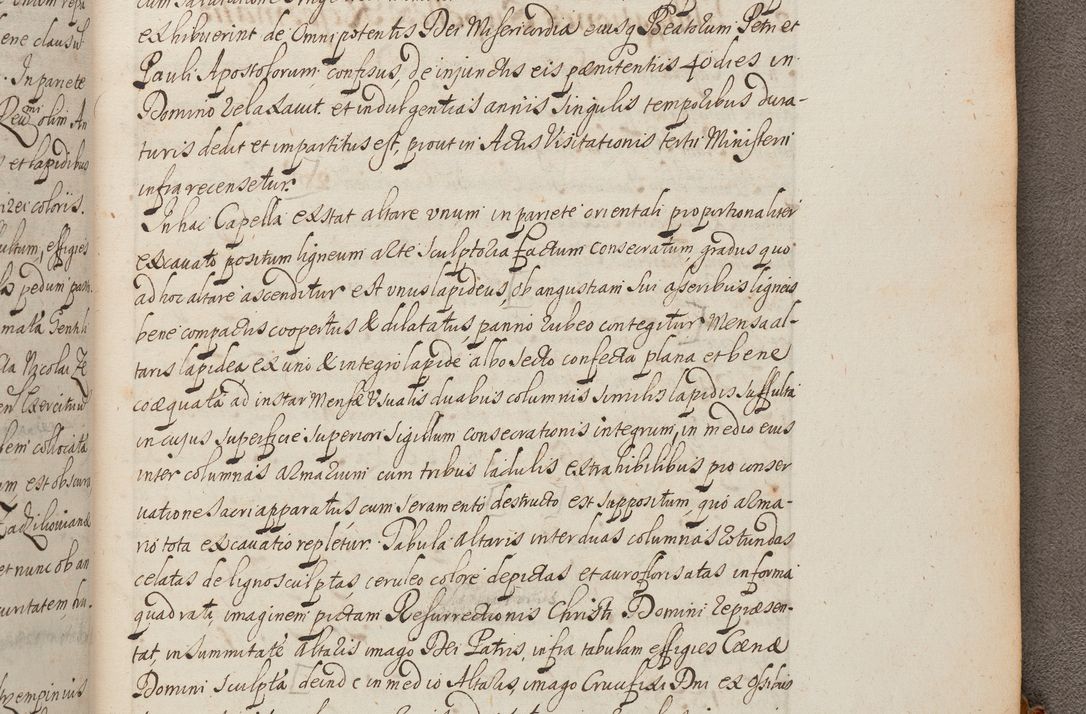 exhibuerint de omnipotentis Dei Misericordia eiusq Beatorum Petri et
Pauli Apostolorum confisus, de injunctis eis pænitentiis 40 dies in
Domino relaxavit. et indulgentias anniis singulis temporibus dura-
turis dedit et impartitus est, prout in Actis Visitationis tertii Ministerii
infra recensetur.
In hac Capella exstat altare unum in pariete orientali proportionaliter
excavato positum ligneum arte sculptoria factum consecratum, gradus quo
ad hoc altare ascenditur est unus lapideus, ob angustiam sui aseribus ligneis
bene compactis coopertus & dilatatus, panno rubeo contegitur Mensa al-
taris lapidea ex uno & integro lapide albo secto confecta plana et bene
coæquata ad instar Mensæ Usualis duabus columnis similis lapidis suffulta
in cujus superficie superiori sigillum consecrationis integrum, in medio eius
inter columnas almarium cum tribus ladulis extrahibilibus pro conser
vatione sacri apparatus cum seramento destructo est suppositum, quo alma-
rio tota excavatio repletur. Tabula Altaris inter duas columnas rotundas
celatas de ligno sculptas, ceruleo colore depictas et auro florisatas in forma
quadrata, imaginem pictam Resurrectionis Christi Domini repræsen-
tat, in summitate altaris imago Dei Patris, infra tabulam effigies Cænæ
Domini sculpta deinde in medio Altaris, imago Crucifixi Dni ex ossibus
ene clausul
. In pariete
olim An
et lapidibus
coloris.
ultum, effigies
pedum
mata Gentili
Nicolai
Exercituu
collocata
am est obscura
et nunc ob an